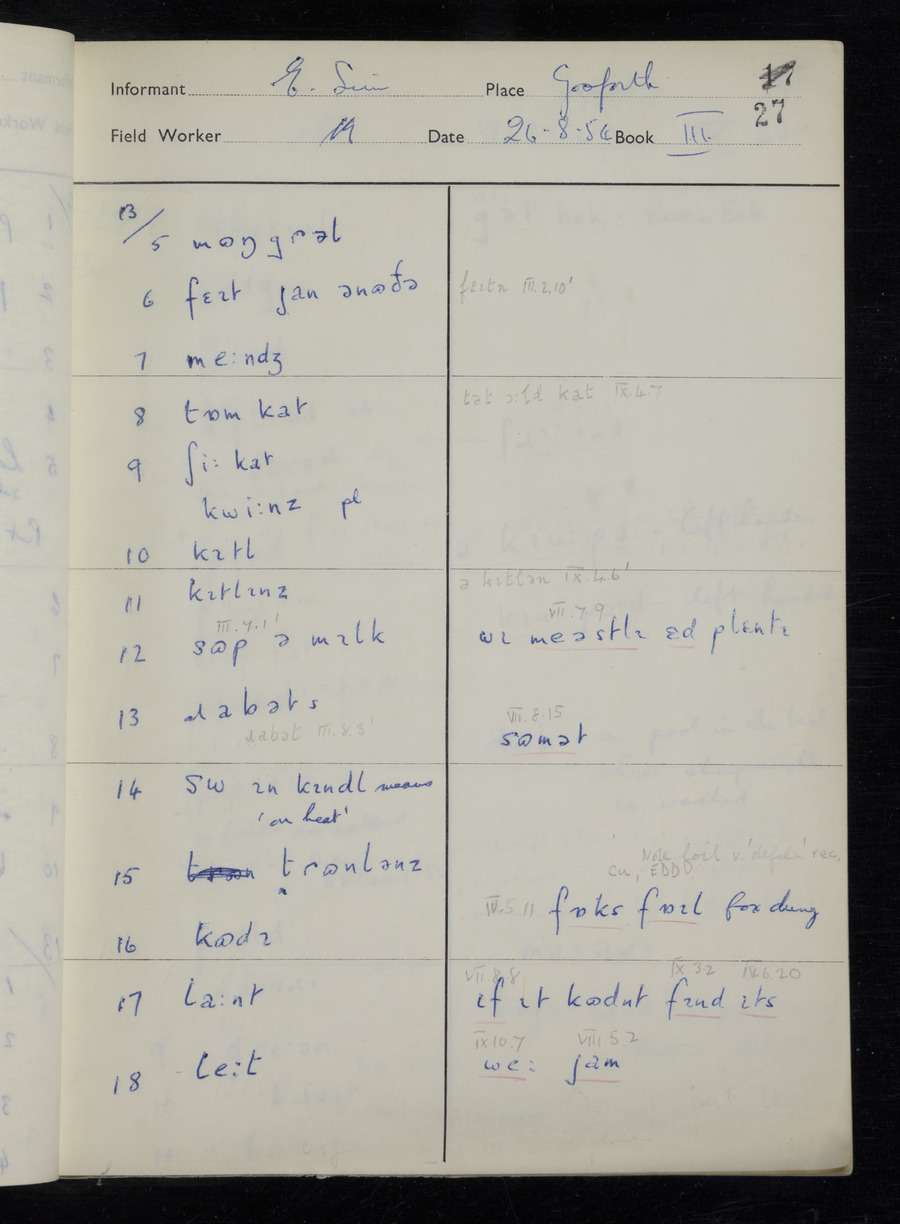 Informant E. Place Gosforth 17
27
Field Worker Date 26-8-54 Book III.
13/5 mɷŋgrəl
6 fɛɪt jan ənɷðə fɛɪtn III.2.10'
7 me:ndʒ
8 tɒm kat tət ɔ:ld kat IX.4.7
9 ʃi: kat
kwi:nz pl
10 kɪtl
11 kɪtlɪnz ə kɪtlən IX.4.6'
III.4.1' VII.7.9
12 sɷp ə mɪlk wɪ meəstlɪ ɛd plɛntɪ
13 ɹabəts VII.8.15
ɹabət III.8.3' sɷmət
14 SW ɪn kɪndl means
'on heat'
Note foil v. 'defile' rec.
Cu, EDD
15 trɷnlənz
IV.5.11 fɒks fɒɪl fox dung
16 kɷdɪ
VII.8.8 IX.3.2 IV.6.20
17 la:nt ɪf ɪt kɷdnt fɪnd ɪts
IX.10.7 VIII.5.2
18 le:t we: jam